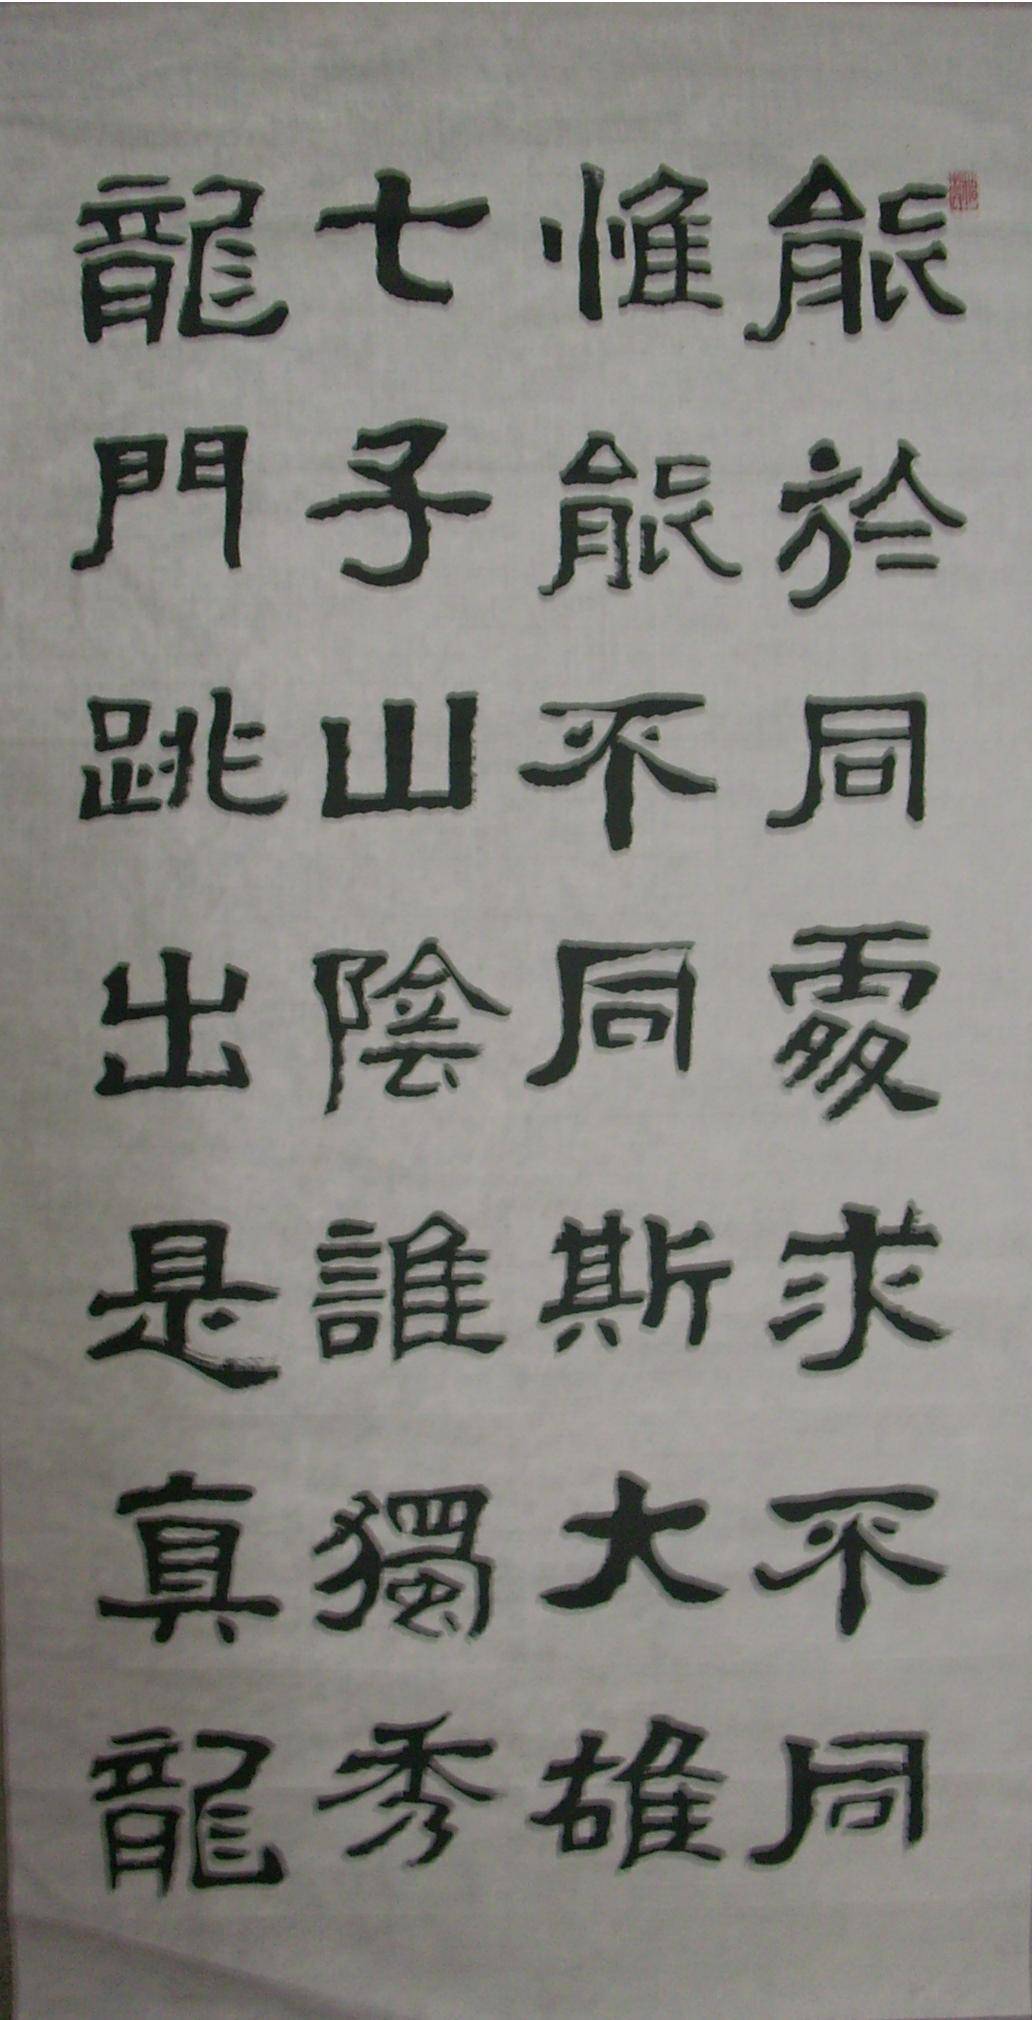 能於同處求不同
惟能不同斯大雄
七子山陰誰獨秀
龍門跳出是真龍